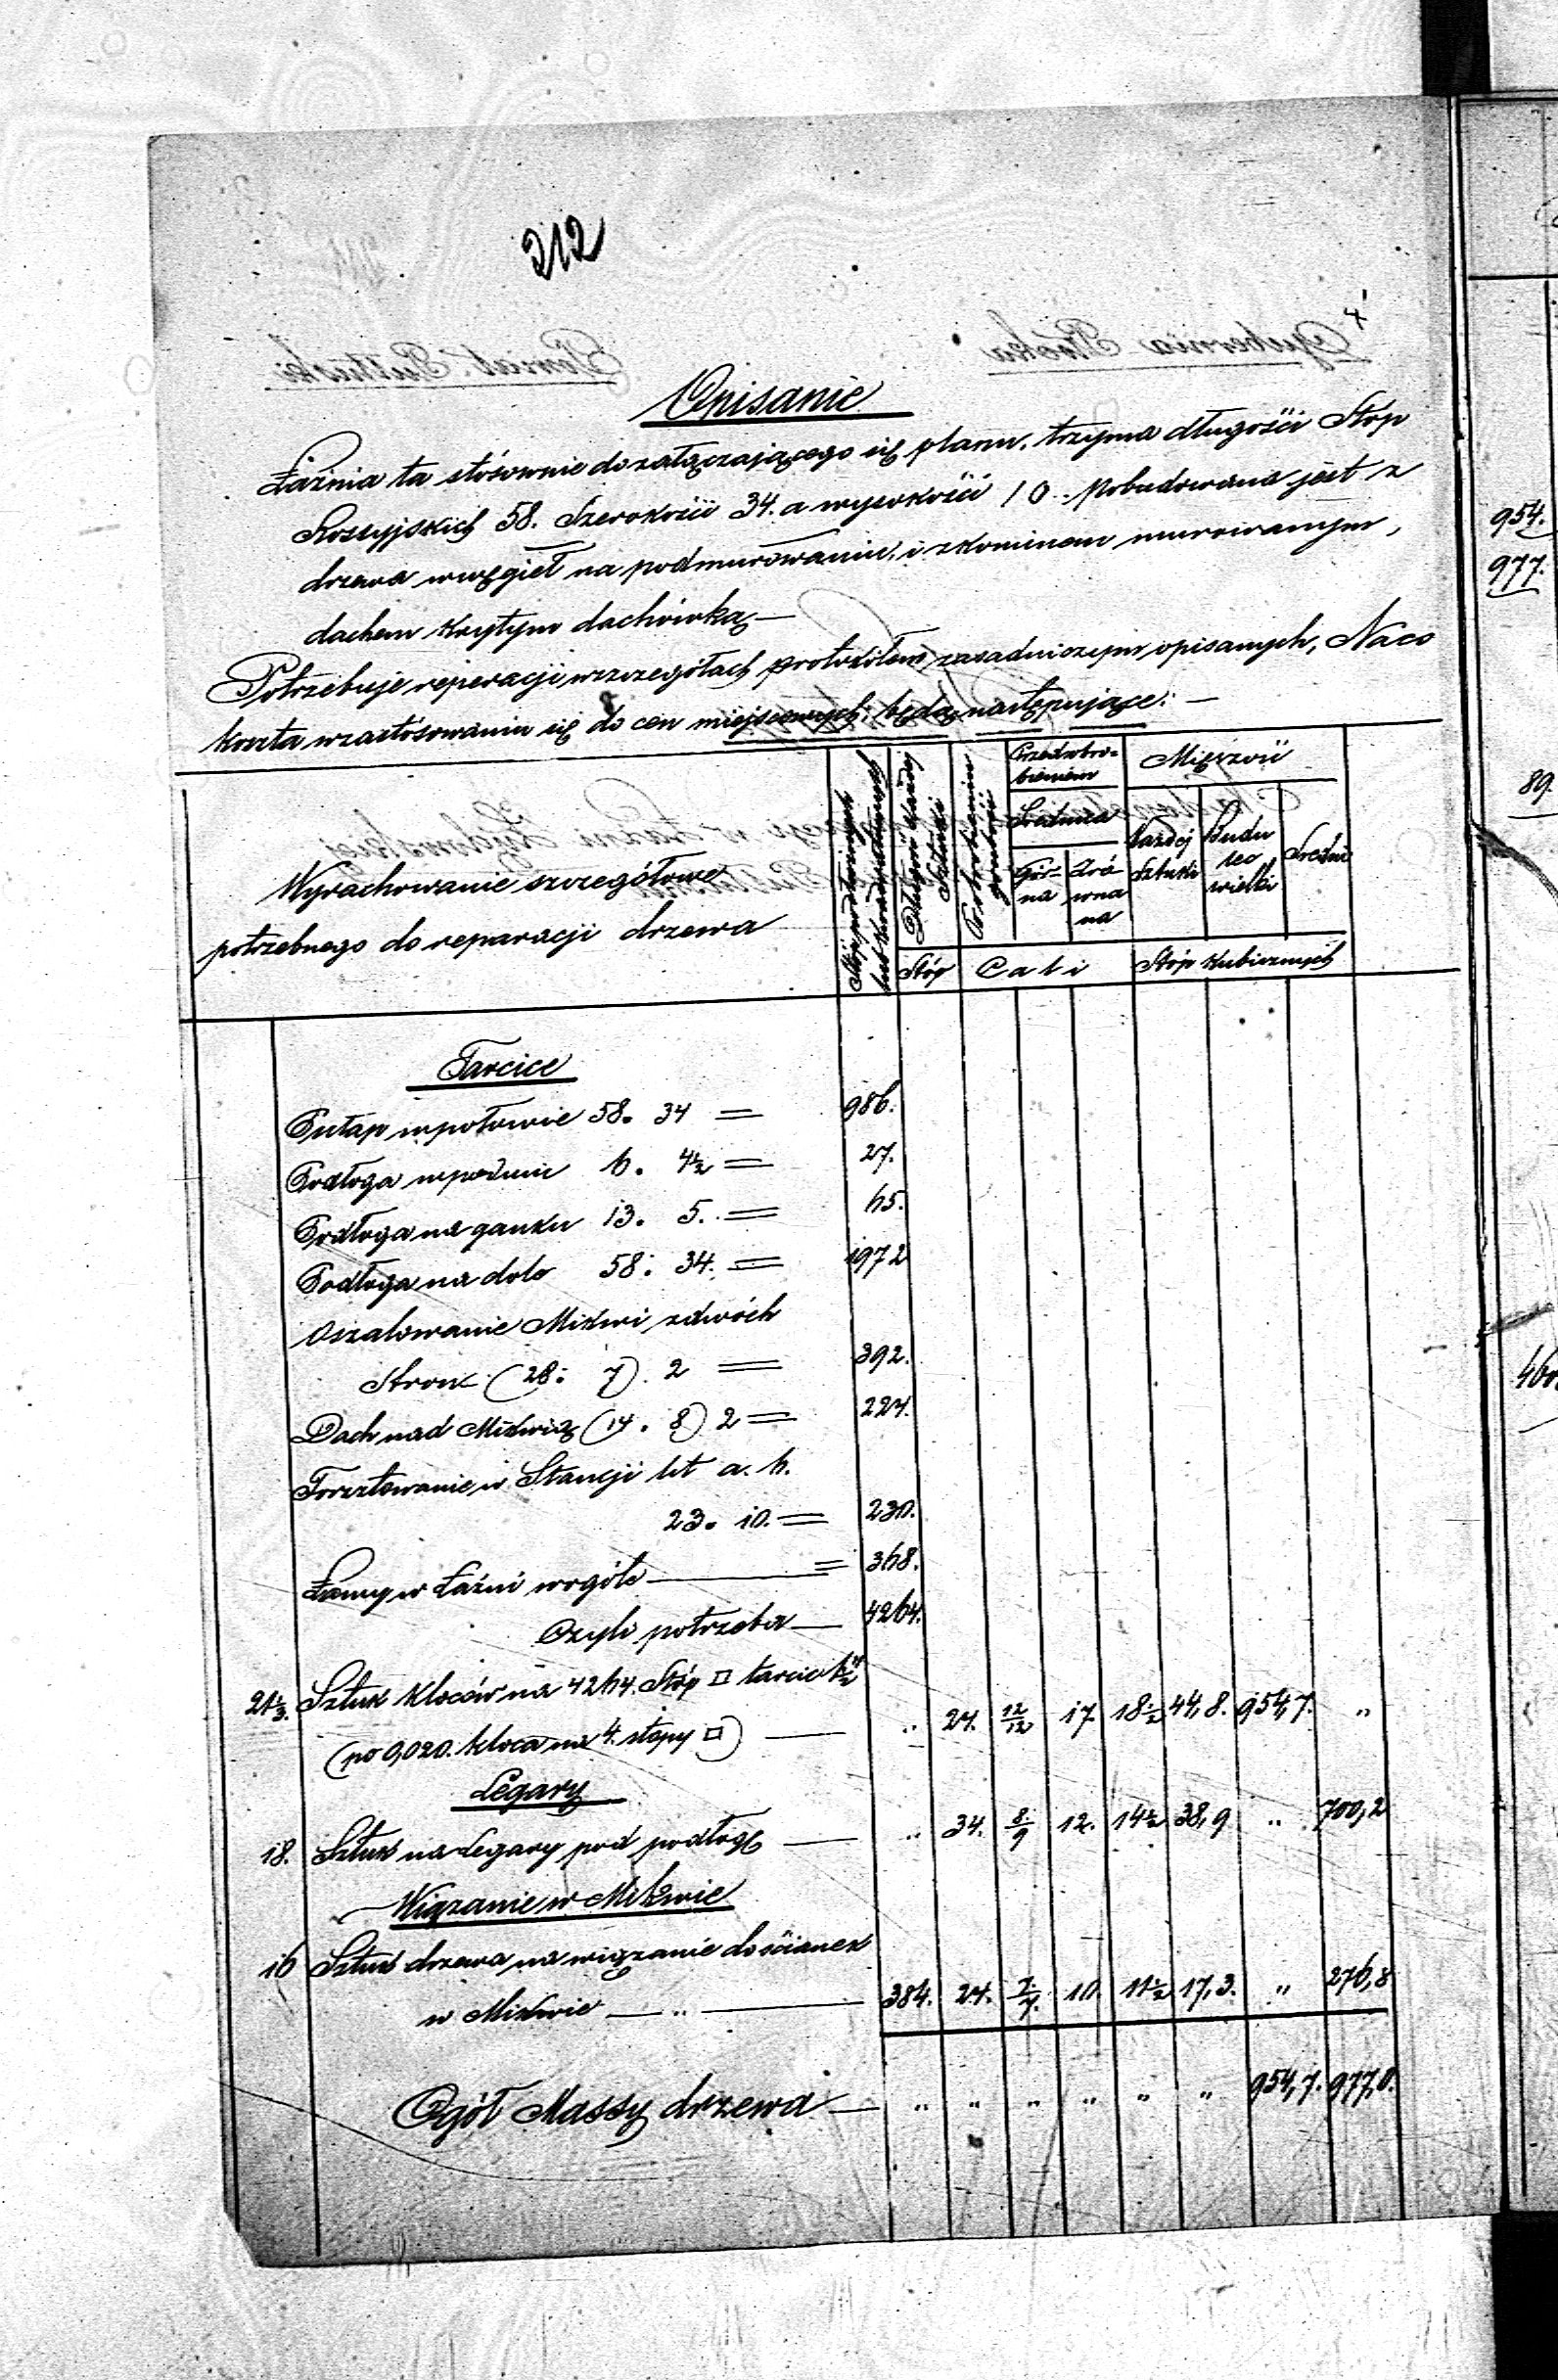 212
4
Opisanie
Łaźnia ta stósownie do załączającego się planu, trzyma długości Stóp
Rossyjskich 58. Szerokości 34. a wysokości 10. pobudowana jest z
drzewa w węgieł na podmurowaniu, i z kominem murowanym,
dachem krytym dachówką —
Potrzebuje reperacji w szczegółach protokółem zasadniczym opisanych, Na co
koszta w zastósowaniu się do cen miejscowych będą następujące: —
Wyrachowanie szczegółowe
potrzebnego do reparacji drzewa
Stóp podłużnych
lub kwadratowych
Długość każdej
Sztuki
Stóp
Po obrobieniu
grubość
Przed obro-
bieniem
Średnica
Gór-
na
Zró
wna
na
Cali
Miąższość
każdej
Sztuki
Budu
lec
wielki
Średni
Stóp kubicznych
Tarcice
Pułap w połowie 58. 34 = 986.
Podłoga w 6. 4½ = 27.
Podłoga na ganku 13. 5. = 65.
Podłoga na dole 58. 34. = 1972
Oszalowanie Mikwi z dwóch
Stron (28. 7). 2 = 392.
Dach nad Mikwią (14. 8) 2 = 224.
Forsztowanie w Stancji lit a. b.
23. 10. = 230.
Ławy w Łaźni w ogóle — = 368.
Czyli potrzeba — 4264.
21⅓. Sztuk kloców na 4264. Stóp □ tarcic
(po 0,020. kloca na 4. stopy □) — " 24. 12/12 17. 18½ 44,8. 954,7. "
Legary
18. Sztuk na Legary pod podłogę — " 34. 8/9 12. 14½ 38,9 " 700,2
Wiązanie w Mikwie
16 Sztuk drzewa na wiązanie do ścianek
w Mikwie — " — 384. 24. 7/7. 10. 11½ 17,3. " 276,8
Ogół Massy drzewa — " " " " " " 954,7. 977,0.
954.
977.
89.